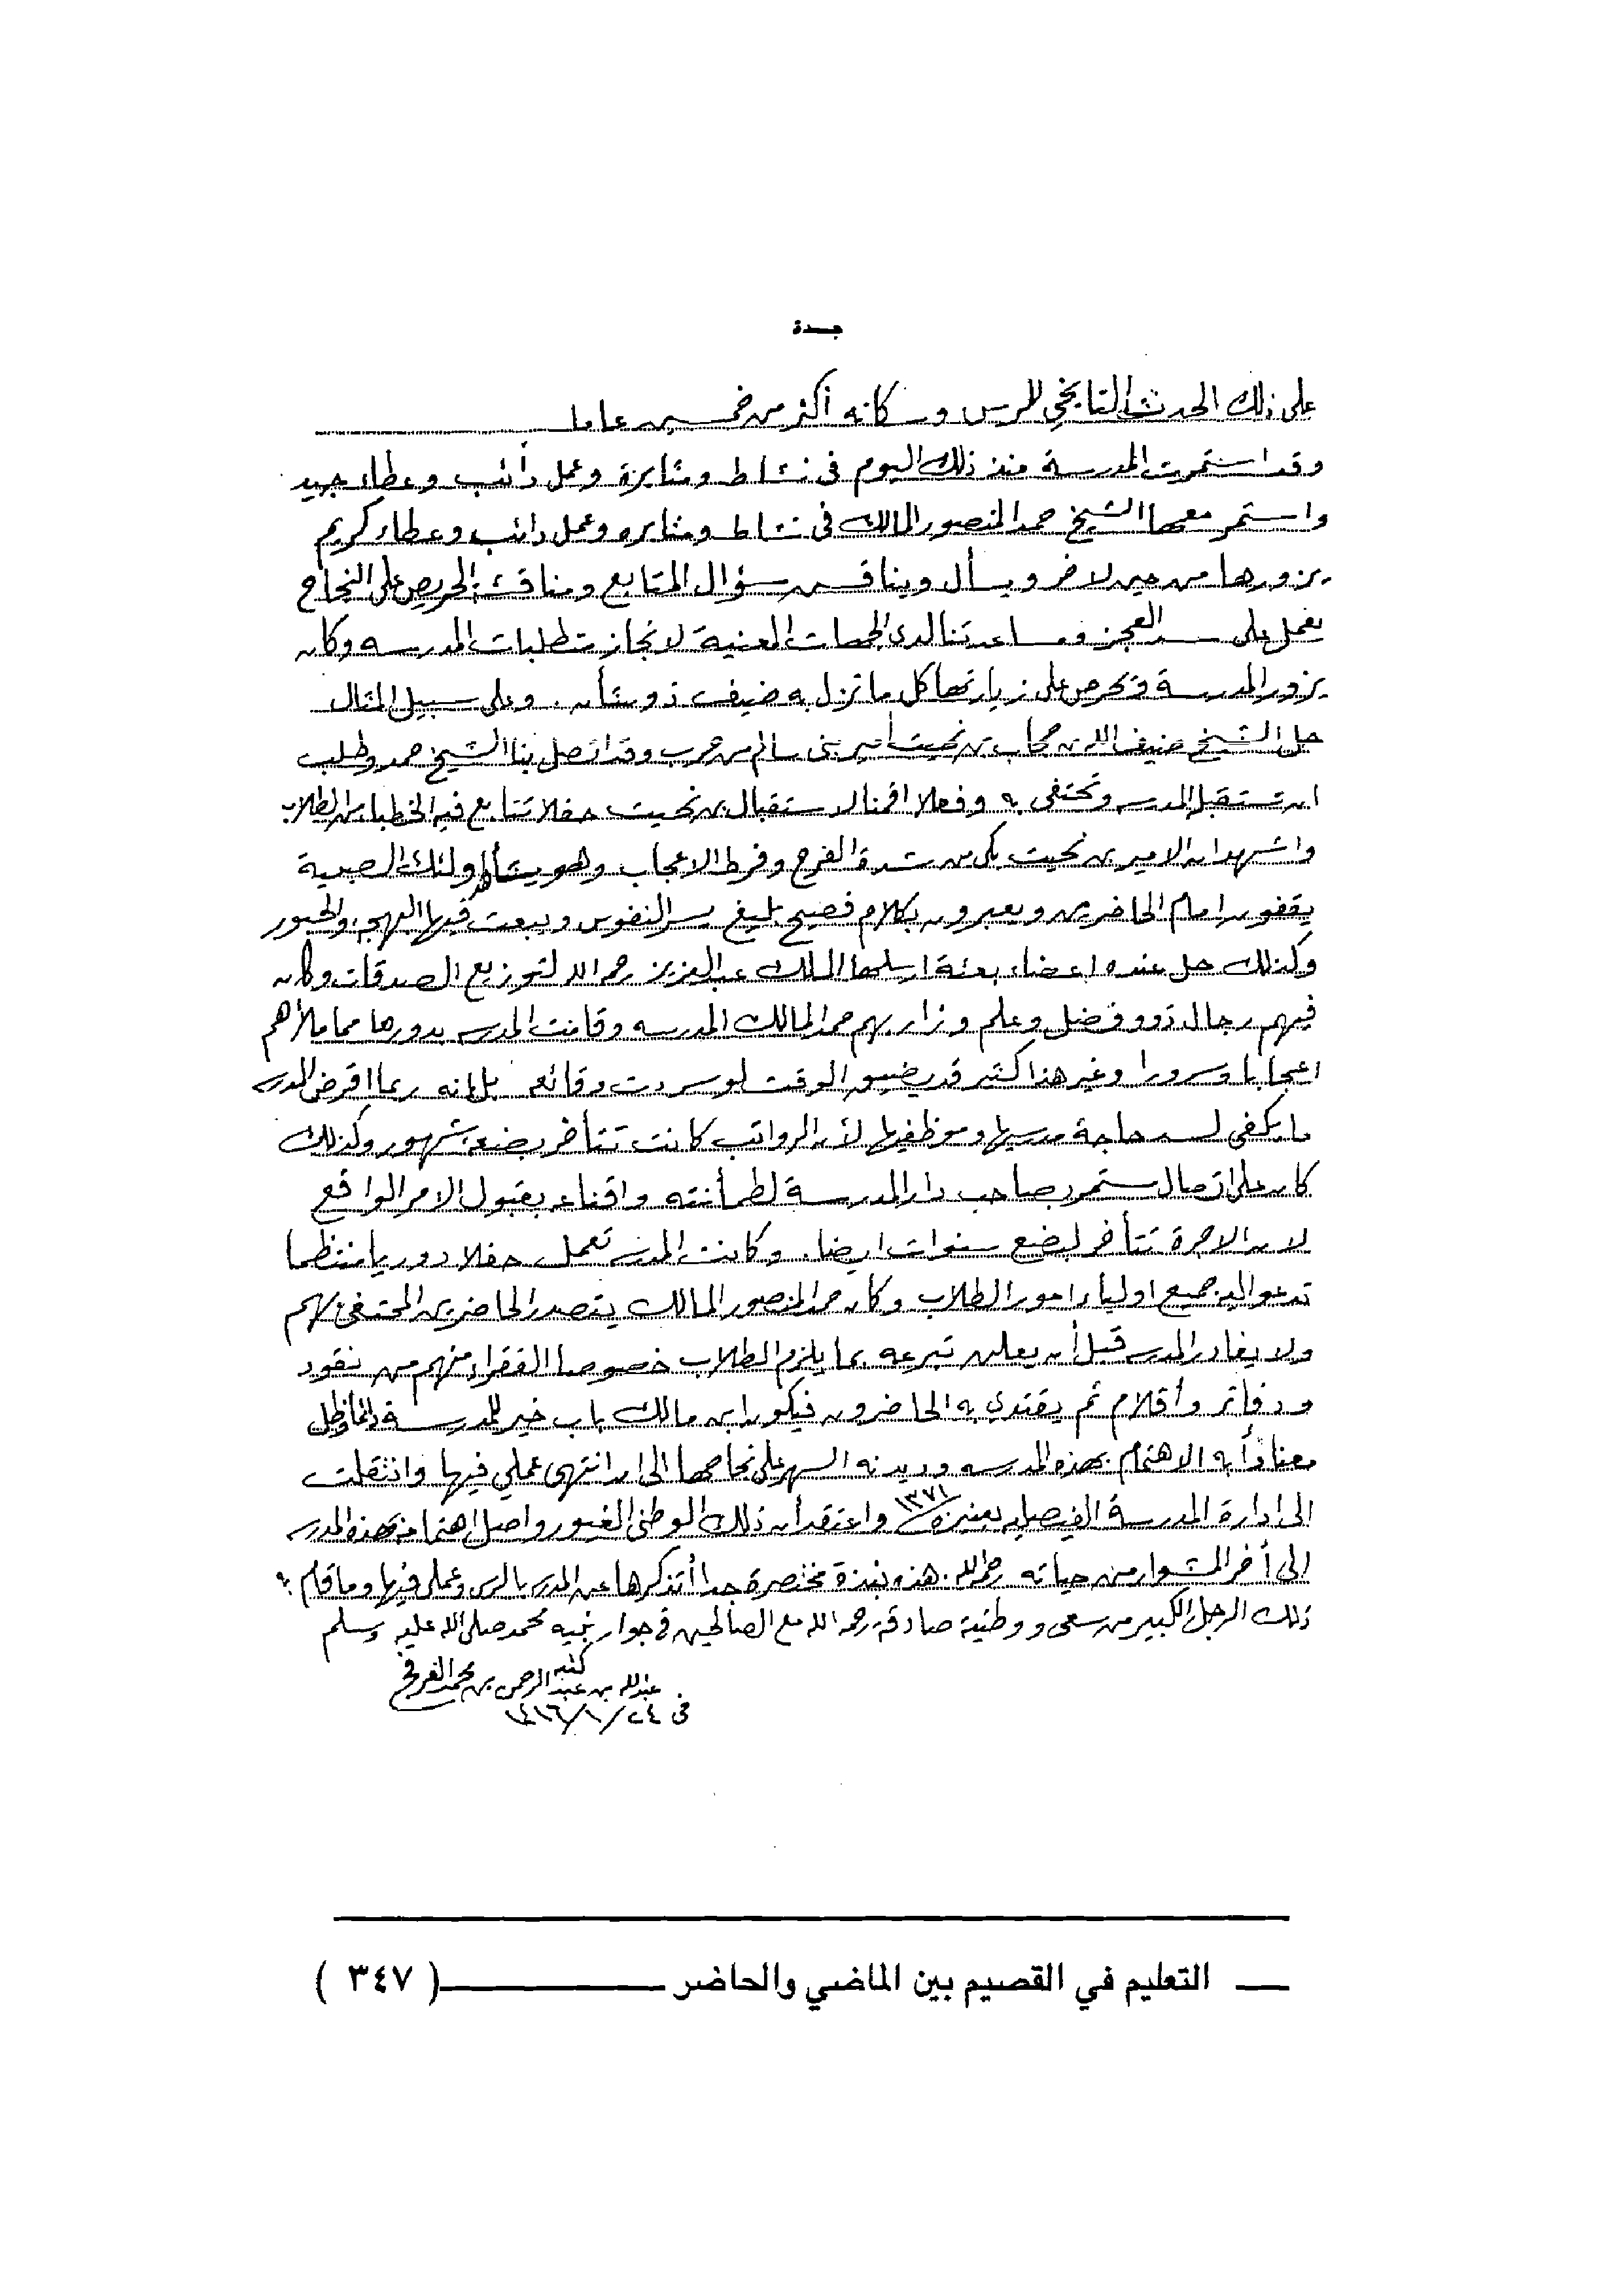 جدة
على ذلك الحدث التاريخي للرس وسكانه أكثر من خمسين عاما
وقد استمرت المدرسة منذ ذلك اليوم في نشاط ومثابرة وعمل دائب وعطاء جيد
واستمر معها الشيخ حمد المنصور المالك في نشاط ومثابره وعمل دائب وعطاء كريم
يزورها من حين لاخر ويسأل ويناقش سؤال المتابع ومناقشة الحريص على النجاح
يعمل على سد العجز ومساعدتنا لدى الجهات المعنية لانجاز متطلبات المدرسه وكان
يزور المدرسة ويحرص على زيارتها كل ما نزل به ضيف ذو شأن. وعلى سبيل المثال
حل الشيخ ضيف الله بن نحيت أمير بني سالم من حرب وقد اتصل بنا الشيخ حمد وطلب
ان تستقبل المدرسه وتحتفي به وفعلا اقمنا لاستقبال بن نحيت حفلا تتابع فيه الخطباء من الطلاب
واشهد ان الامير بن نحيت بكى من شدة الفرح وفرط الاعجاب وهو يشاهد اولئك الصبية
يقفون امام الحاضرين ويعبرون بكلام فصيح بليغ يسر النفوس ويبعث فيها البهجه والحبور
وكذلك حل عنده اعضاء بعثة ارسلها الملك عبدالعزيز رحمه الله لتوزيع الصدقات وكان
فيهم رجال ذوو فضل وعلم وزار بهم حمد المالك المدرسه وقامت المدرسه بدورها مما ملأهم
اعجابا وسرورا وغير هذا كثير قد يضيق الوقت لو سردت وقائعه بل انه ربما اقرض المدرسه
ما يكفي لسد حاجة مدرسيها وموظفيها لأن الرواتب كانت تتأخر بضعة شهور وكذلك
كان على اتصال مستمر بصاحب دار المدرسة لطمأنته واقناعه بقبول الامر الواقع
لان الاجرة تتأخر لبضع سنوات ايضا. وكانت المدرسه تعمل حفلا دوريا منتظما
تدعو اليه جميع اولياء امور الطلاب وكان حمد المنصور المالك يتصدر الحاضرين المحتفى بهم
ولا يغادر المدرسه قبل أن يعلن تبرعه بما يلزم الطلاب خصوصا الفقراء منهم من نقود
ودفاتر وأقلام ثم يقتدي به الحاضرون فيكون ابن مالك باب خير للمدرسة وظل
به الاهتمام بهذه المدرسه وديدنه السهر على نجاحها الى ان انتهى عملي فيها وانتقلت
الى ادارة المدرسة الفيصليه بعنيزه ١٣٧١ واعتقد أن ذلك الوطني الغيور واصل اهتمامه بهذه المدرسه
الى أخر المشوار من حياته رحمه الله. هذه نبذة مختصرة جدا أتذكرها عن المدرسه بالرس وعملي فيها وما قام به
ذلك الرجل الكبير من سعى ووطنية صادقة رحمه الله مع الصالحين في جوار نبيه محمد صلى الله عليه وسلم
كتبه
عبدالله بن عبدالرحمن بن محمد العرفج
في ٢٤/١/١٤١٦
التعليم في القصيم بين الماضي والحاضر ( ٣٤٧ )